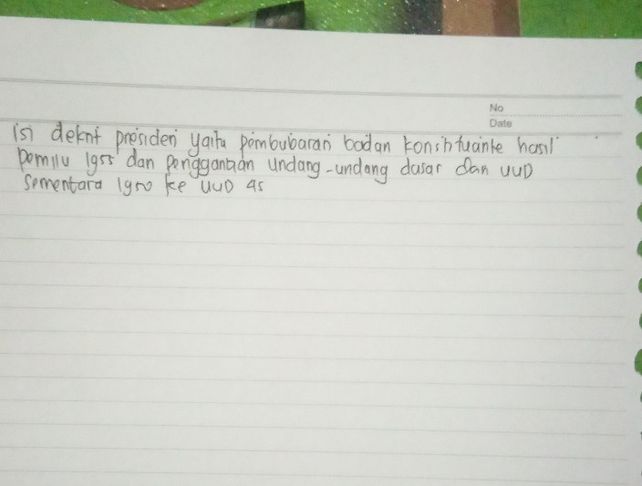 No
Date
isi dekrit presiden yaitu pembubaran badan konstituante hasil
pemilu 1955 dan penggantian undang-undang dasar dan UUD
sementara 1950 ke UUD 45